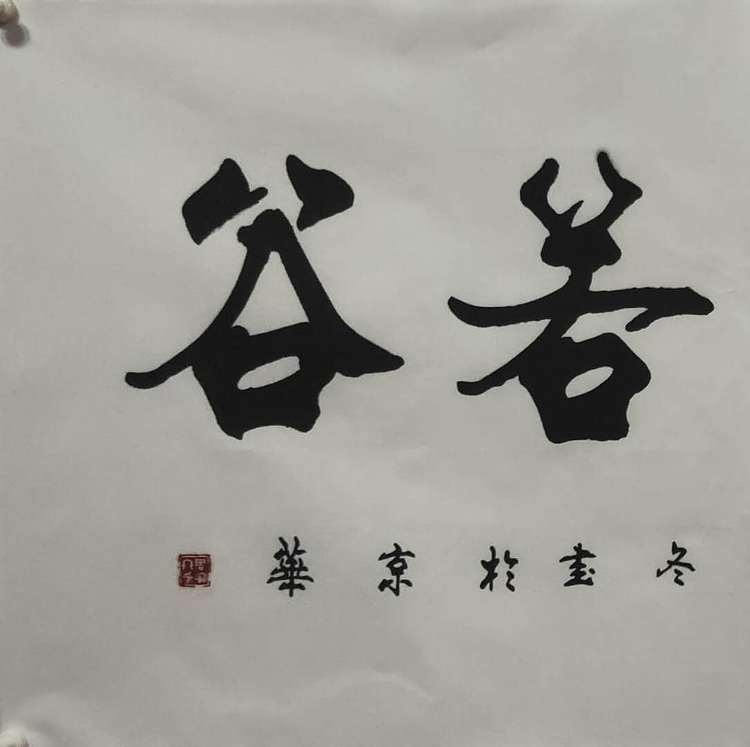 若谷
冬书於京華